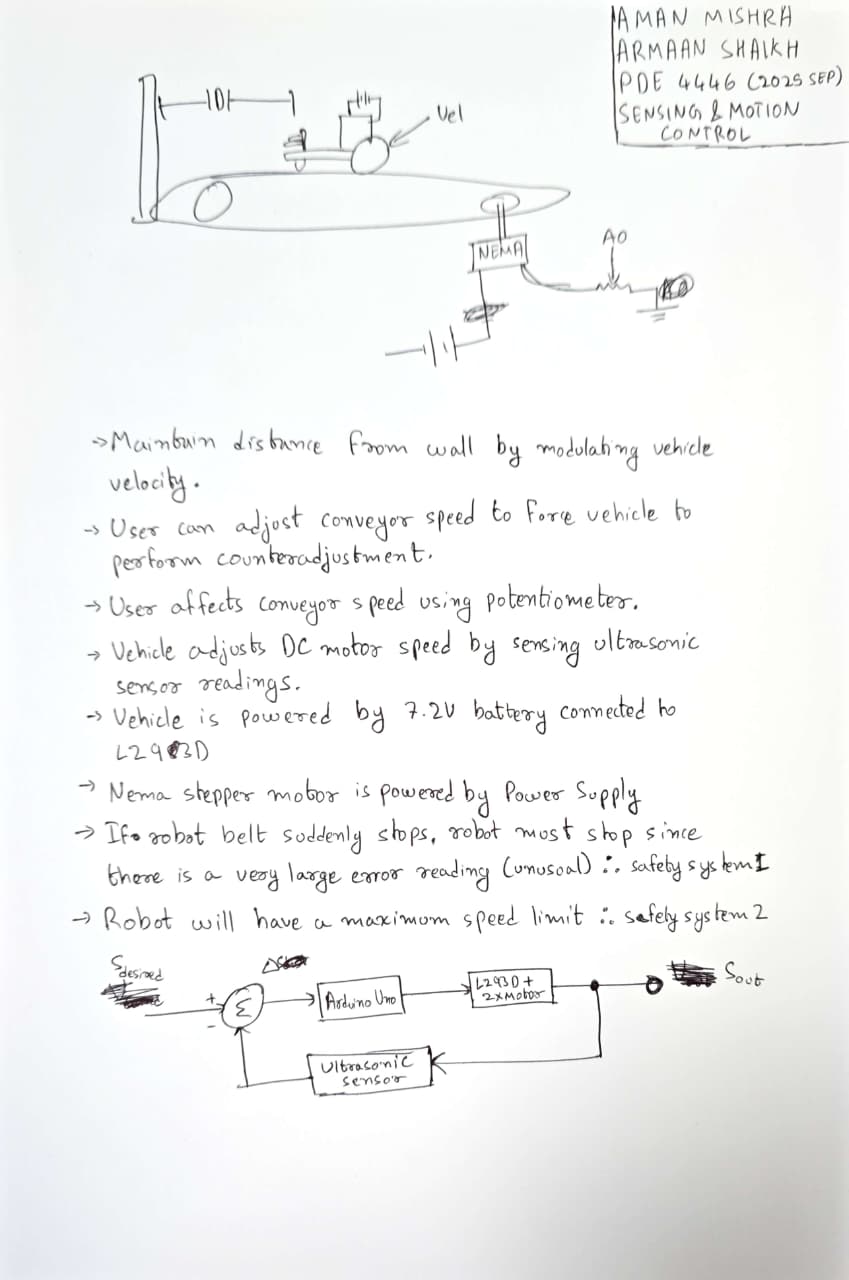 AMAN MISHRA
ARMAAN SHAIKH
PDE 4446 (2025 SEP)
SENSING & MOTION
CONTROL
D
Vel
NEMA
A0
→ Maintain distance from wall by modulating vehicle
velocity.
→ User can adjust conveyor speed to force vehicle to
perform counteradjustment.
→ User affects conveyor speed using potentiometer.
→ Vehicle adjusts DC motor speed by sensing ultrasonic
sensor readings.
→ Vehicle is powered by 7.2V battery connected to
L293D
→ Nema stepper motor is powered by Power Supply
→ If robot belt suddenly stops, robot must stop since
there is a very large error reading (unusual) ∴ safety system 1
→ Robot will have a maximum speed limit ∴ safety system 2
Sdesired
+
-
Σ
Arduino Uno
L293D +
2xMotor
Sout
Ultrasonic
sensor